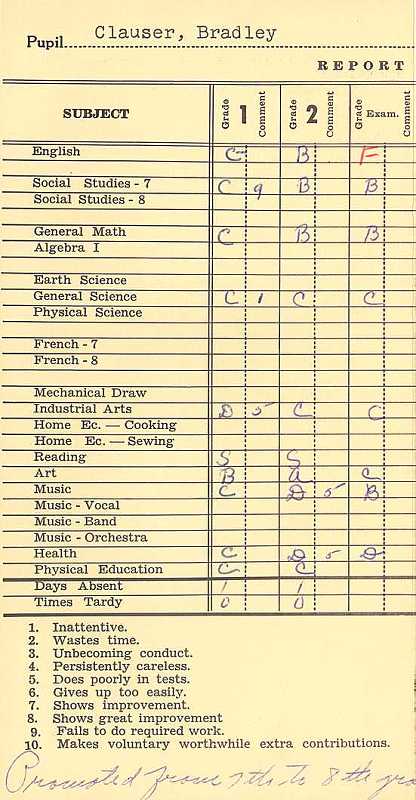 Pupil Clauser, Bradley
REPORT
SUBJECT Grade 1 Comment Grade 2 Comment Grade Exam. Comment
English C- B F
Social Studies - 7 C 9 B B
Social Studies - 8
General Math C B B
Algebra I
Earth Science
General Science C 1 C C
Physical Science
French - 7
French - 8
Mechanical Draw
Industrial Arts D 5 C C
Home Ec. — Cooking
Home Ec. — Sewing
Reading S S
Art B a C
Music C D 5 B
Music - Vocal
Music - Band
Music - Orchestra
Health C D 5 D
Physical Education C C
Days Absent 1 1
Times Tardy 0 0
1. Inattentive.
2. Wastes time.
3. Unbecoming conduct.
4. Persistently careless.
5. Does poorly in tests.
6. Gives up too easily.
7. Shows improvement.
8. Shows great improvement
9. Fails to do required work.
10. Makes voluntary worthwhile extra contributions.
Promoted from 7th to 8th gra